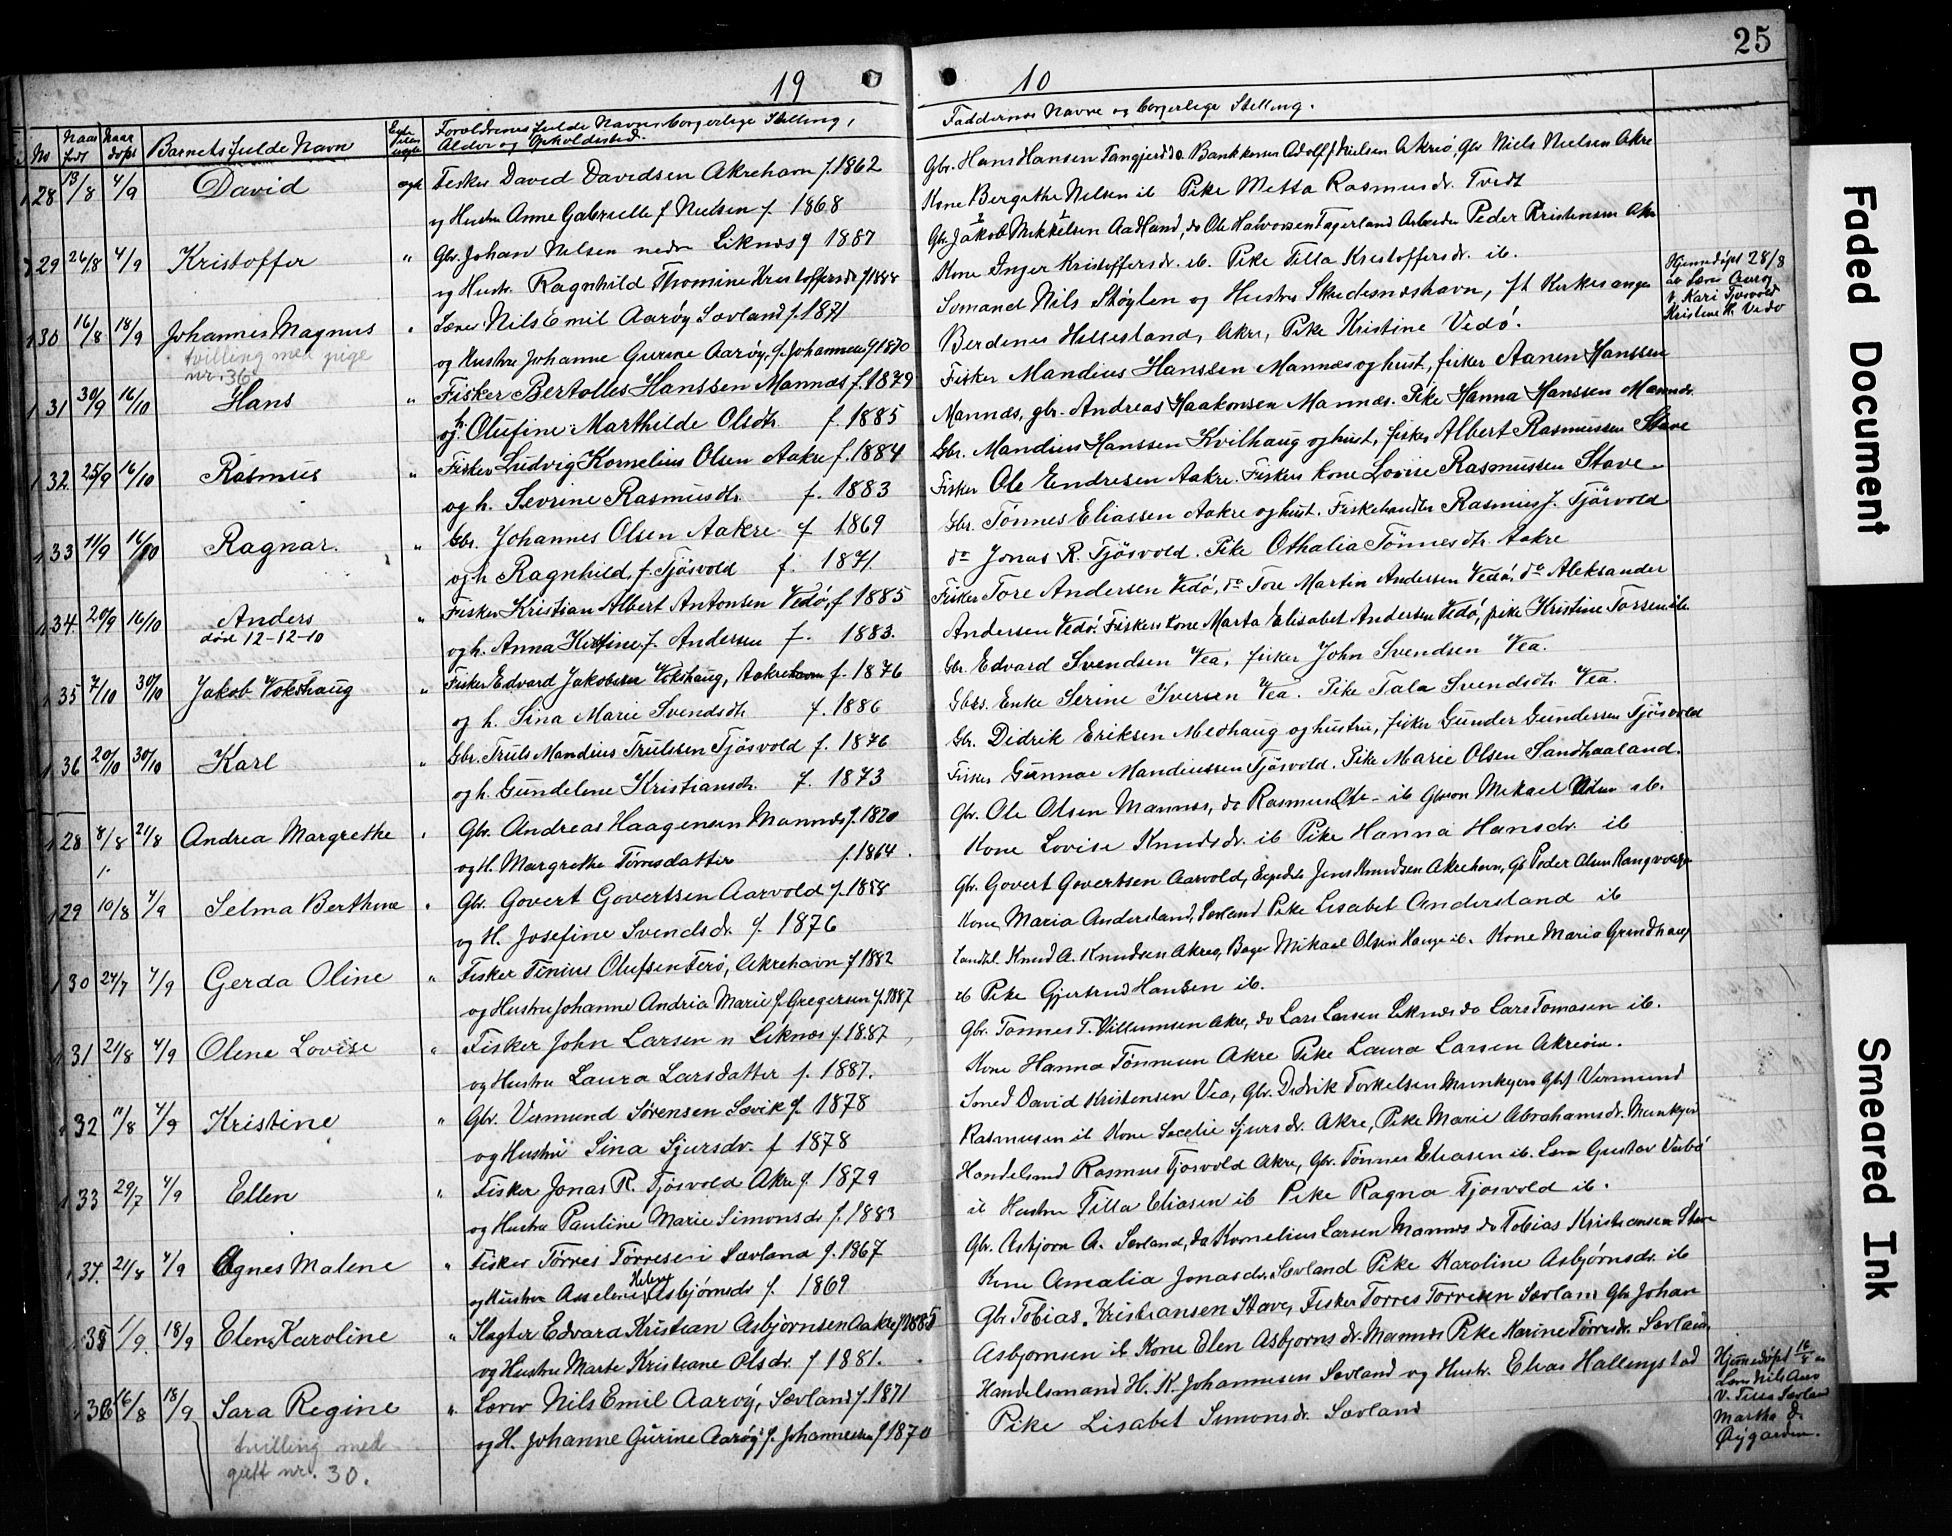 25
19 10
No Naar født Naar døpt Barnets fulde Navn Forældrenes fulde Navne, borgerlige Stilling, Alder og Opholdssted. Faddernes Navne og borgerlige Stilling.
28 13/8 4/9 David Fisker David Davidsen Akrehavn f. 1862 Gbr. Hans Hansen Nielsen Akre, Gbr Niels Nielsen Akre
og Hustru Anne Gabrielle f Nielsen f. 1868 Kone Bergithe Nilsen ib Pike Metta Rasmusdr. Tvedt
29 26/8 4/9 Kristoffer " Gbr. Johan Nilsen nedr Liknes f 1887 Gbr. Jakob Mikkelsen Aadland, do Ole Halvorsen Fagerland Arbeider Peder Kristensen Akre
og Hustr. Ragnhild Thomine Kristoffersdr f 1888 Kone Inger Kristoffersdr. ib. Pike Tilla Kristoffersdr. ib.
30 16/8 18/9 Johannes Magnus " Lærer Nils Emil Aarøy Sævland f. 1871 Somand Nils Støylen og Hustru Skudesneshavn, fh Kirkesanger
tvilling med pige nr. 36 og Hustru Johanne Gurine Aarøy, f. Johannesen f 1870 Berdenes Hillesland, Akre, Pike Kristine Vedø.
Hjemmedøpt 28/8
av Lærer Aarøy
v. Kari Tjøsvold
Kristine K. Vedø
31 30/9 16/10 Hans " Fisker Bertolles Hanssen Mannes f. 1879 Fisker Mandius Hanssen Mannes og hust, fisker Aanen Hanssen
og h. Olufine Marthilde Olsdtr. f. 1885 Mannes, gbr. Andreas Haakonsen Mannes. Pike Hanna Hanssen Mannes.
32 25/9 16/10 Rasmus " Fisker Ludvig Kornelius Olsen Aakre f. 1884 Gbr. Mandius Hanssen Kvilhaug og hust, fisker Albert Rasmussen Stave
og h. Sevrine Rasmusdtr. f. 1883 Fisker Ole Endresen Aakre. Fiskers kone Lovise Rasmussen Stave
33 11/9 16/10 Ragnar. " Gbr. Johannes Olsen Aakre f 1869 Gbr. Tønnes Eliassen Aakre og hust. Fiskehandler Rasmus J. Tjøsvold
og h Ragnhild, f. Tjøsvold f. 1871. do Jonas R. Tjøsvold. Pike Othalia Tønnesdtr. Aakre
34. 20/9 16/10 Anders " Fisker Kristian Albert Antonsen Vedø, f 1885 Fisker Tore Andersen Vedø, do Tore Martin Andersen Vedø, do Aleksander
død 12-12-10 og h. Anna Kirstine f. Andersen f. 1883. Andersen Vedø. Fiskers kone Marta Elisabet Andersen Vedø, pike Kristine Torsendtr.
35 7/10 30/10 Jakob Vokshaug " Fisker Edvard Jakobsen Vokshaug, Aakrehavn f. 1876 Gbr. Edvard Svendsen Vea, fisker John Svendsen Vea.
og h. Sina Marie Svendsdtr f. 1886 Gbrs. Enke Serine Iversen Vea. Pike Tala Svendsdtr. Vea.
36 20/10 30/10 Karl " Gbr. Truls Mandius Trulssen Tjøsvold f. 1876 Gbr. Didrik Eriksen Medhaug og hustru, fisker Gunder Gundersen Tjøsvold
og h. Gundelene Kristiansdtr. f. 1873 Fisker Gunnar Mandiussen Tjøsvold. Pike Marie Olsen Sandhaaland.
28 8/8 21/8 Andrea Margrethe " Gbr. Andreas Haagensen Mannes f. 1870 Gbr. Ole Olsen Mannes, do Rasmus ib Mikael Nilsen ib.
og H. Margrethe Tørresdatter f. 1864. Kone Lovise Knudsdr. ib Pike Hanna Hansdr. ib
29 10/8 4/9 Selma Berthine " Gbr. Govert Govertsen Aarvold f. 1858 Gbr. Govert Govertsen Aarvold, Jens Knudsen Akrehavn, Gb Peder Olsen
og H. Josefine Svendsdr. f. 1876 Kone Maria Andersland, Sævland Pike Lisabet Andersland ib
30 24/7 4/9 Gerda Oline " Fisker Tinius Olufsen Ferø, Akrehavn f 1882 Landhl. Knud A. Knudsen Akrea, Bager Mikael Olsen Hauge ib. Kone Maria Grindhaug
og Hustru Johanne Andria Marie f. Gregersen f. 1887 ib Pike Gjertrud Hansen ib.
31 21/8 4/9 Olene Lovise " Fisker John Larsen n Liknes f. 1887 Gbr. Tønnes T. Villumsen Akre, do Lars Larsen Liknes do Lars Tomasen ib.
og Hustru Laura Larsdatter f. 1887. Kone Hanna Tønnesen Akre Pike Laura Larsen
32 11/8 4/9 Kristine " Gbr. Vermund Sørensen Sævik f. 1878 David Kristensen Vea, Gbr. Didrik Torkelsen Munkejord Gbr Vermund
og Hustru Sina Sjursdr. f 1878 Rasmussen ib Kone Secelie Sjursdr. Akre, Pike Marie Abrahamsdr. Munkejord
33 29/7 4/9 Ellen " Fisker Jonas R. Tjøsvold Akre f. 1879 Handelsmd Rasmus Tjøsvold Akre, Gbr. Tønnes Eliasen ib. Gustav
og Hustru Pauline Marie Simonsdr f. 1883 ib Hustru Tilla Eliasen ib Pike Ragna Tjøsvold ib.
34. 21/8 4/9 Agnes Malene " Fisker Tørres Tørresen i Sævland f. 1867 Gbr. Asbjørn A. Sævland, do Kornelius Larsen Mannes do Tobias Kristiansen Stave
og Hustru Asseline Helene Asbjørnsdr f. 1869 Kone Amalia Jonasdr. Sævland Pike Karoline Asbjørnsdr. ib
35 1/9. 18/9 Elen Karoline " Slagter Edvard Kristian Asbjørnsen Aakre f 1885 Gbr. Tobias Kristiansen Stave, Fisker Tørres Tørresen Sævland Gbr Johan
og Hustru Marte Kristiane Olsdr. f 1881. Asbjørnsen ib Kone Elen Asbjørnsdr. Mannes Pike Karine Tørresdr. Sævland
36 16/8 18/9 Sara Regine " Lærer Nils Emil Aarøy, Sævland f. 1871 Handelsmand H. K. Johannesen Sævland og Hustr. Elias Hallingstad
tvilling med gutt nr. 30. og H. Johanne Gurine Aarøy f. Johannesen f 1870 Pike Lisabet Simonsdr. Sævland
Hjemmedøpt
V. Tilla Sævland
Martha
Øygarden.
Faded Document
Smeared Ink